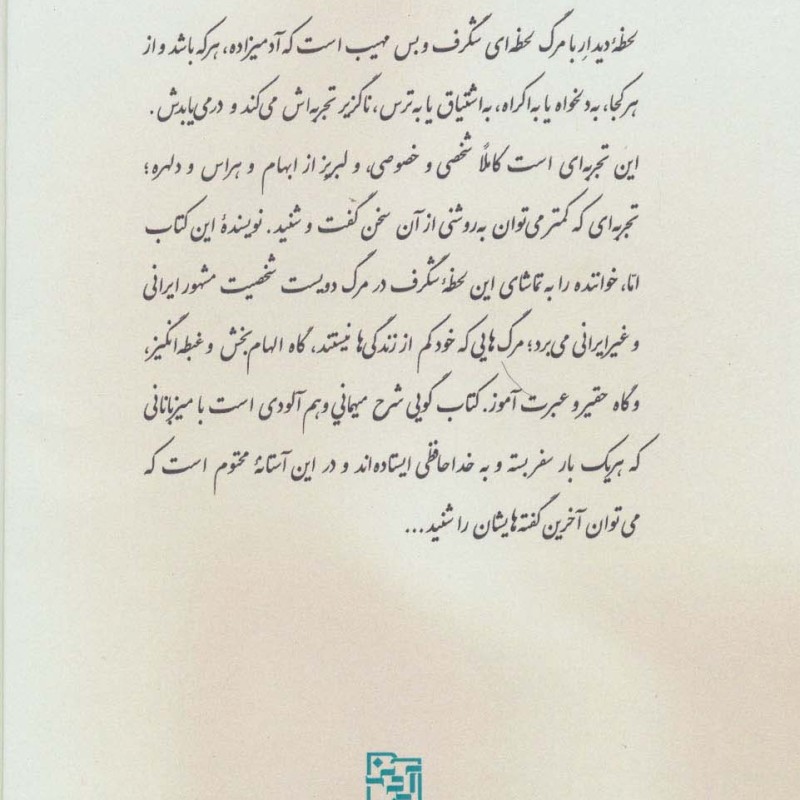 لحظهٔ دیدارِ با مرگ لحظه‌ای شگرف و بس مهیب است که آدمیزاده، هرکه باشد و از
هرکجا، به‌دلخواه یا به‌اکراه، به‌اشتیاق یا به‌ترس، ناگزیر تجربه‌اش می‌کند و درمی‌یابدش.
این تجربه‌ای است کاملاً شخصی و خصوصی، و لبریز از ابهام و هراس و دلهره؛
تجربه‌ای که کمتر می‌توان به‌روشنی از آن سخن گفت و شنید. نویسندهٔ این کتاب
امّا، خواننده را به تماشای این لحظهٔ شگرف در مرگ دویست شخصیت مشهور ایرانی
و غیرایرانی می‌برد؛ مرگ‌هایی که خود کم از زندگی‌ها نیستند، گاه الهام‌بخش و غبطه‌انگیز،
و گاه حقیر و عبرت‌آموز. کتاب گویی شرح میهمانیِ وهم‌آلودی است با میزبانانی
که هریک بار سفر بسته و به خداحافظی ایستاده‌اند و در این آستانهٔ محتوم است که
می‌توان آخرین گفته‌هایشان را شنید...